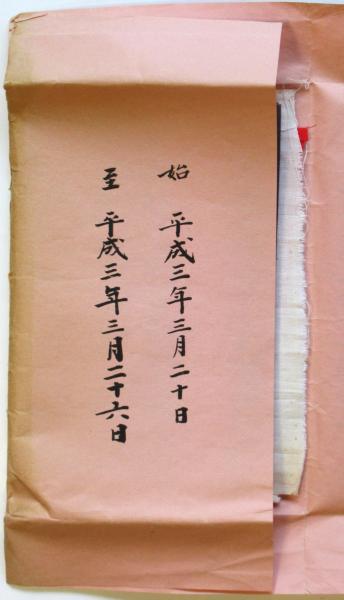 始 平成三年三月二十日
至 平成三年三月二十六日